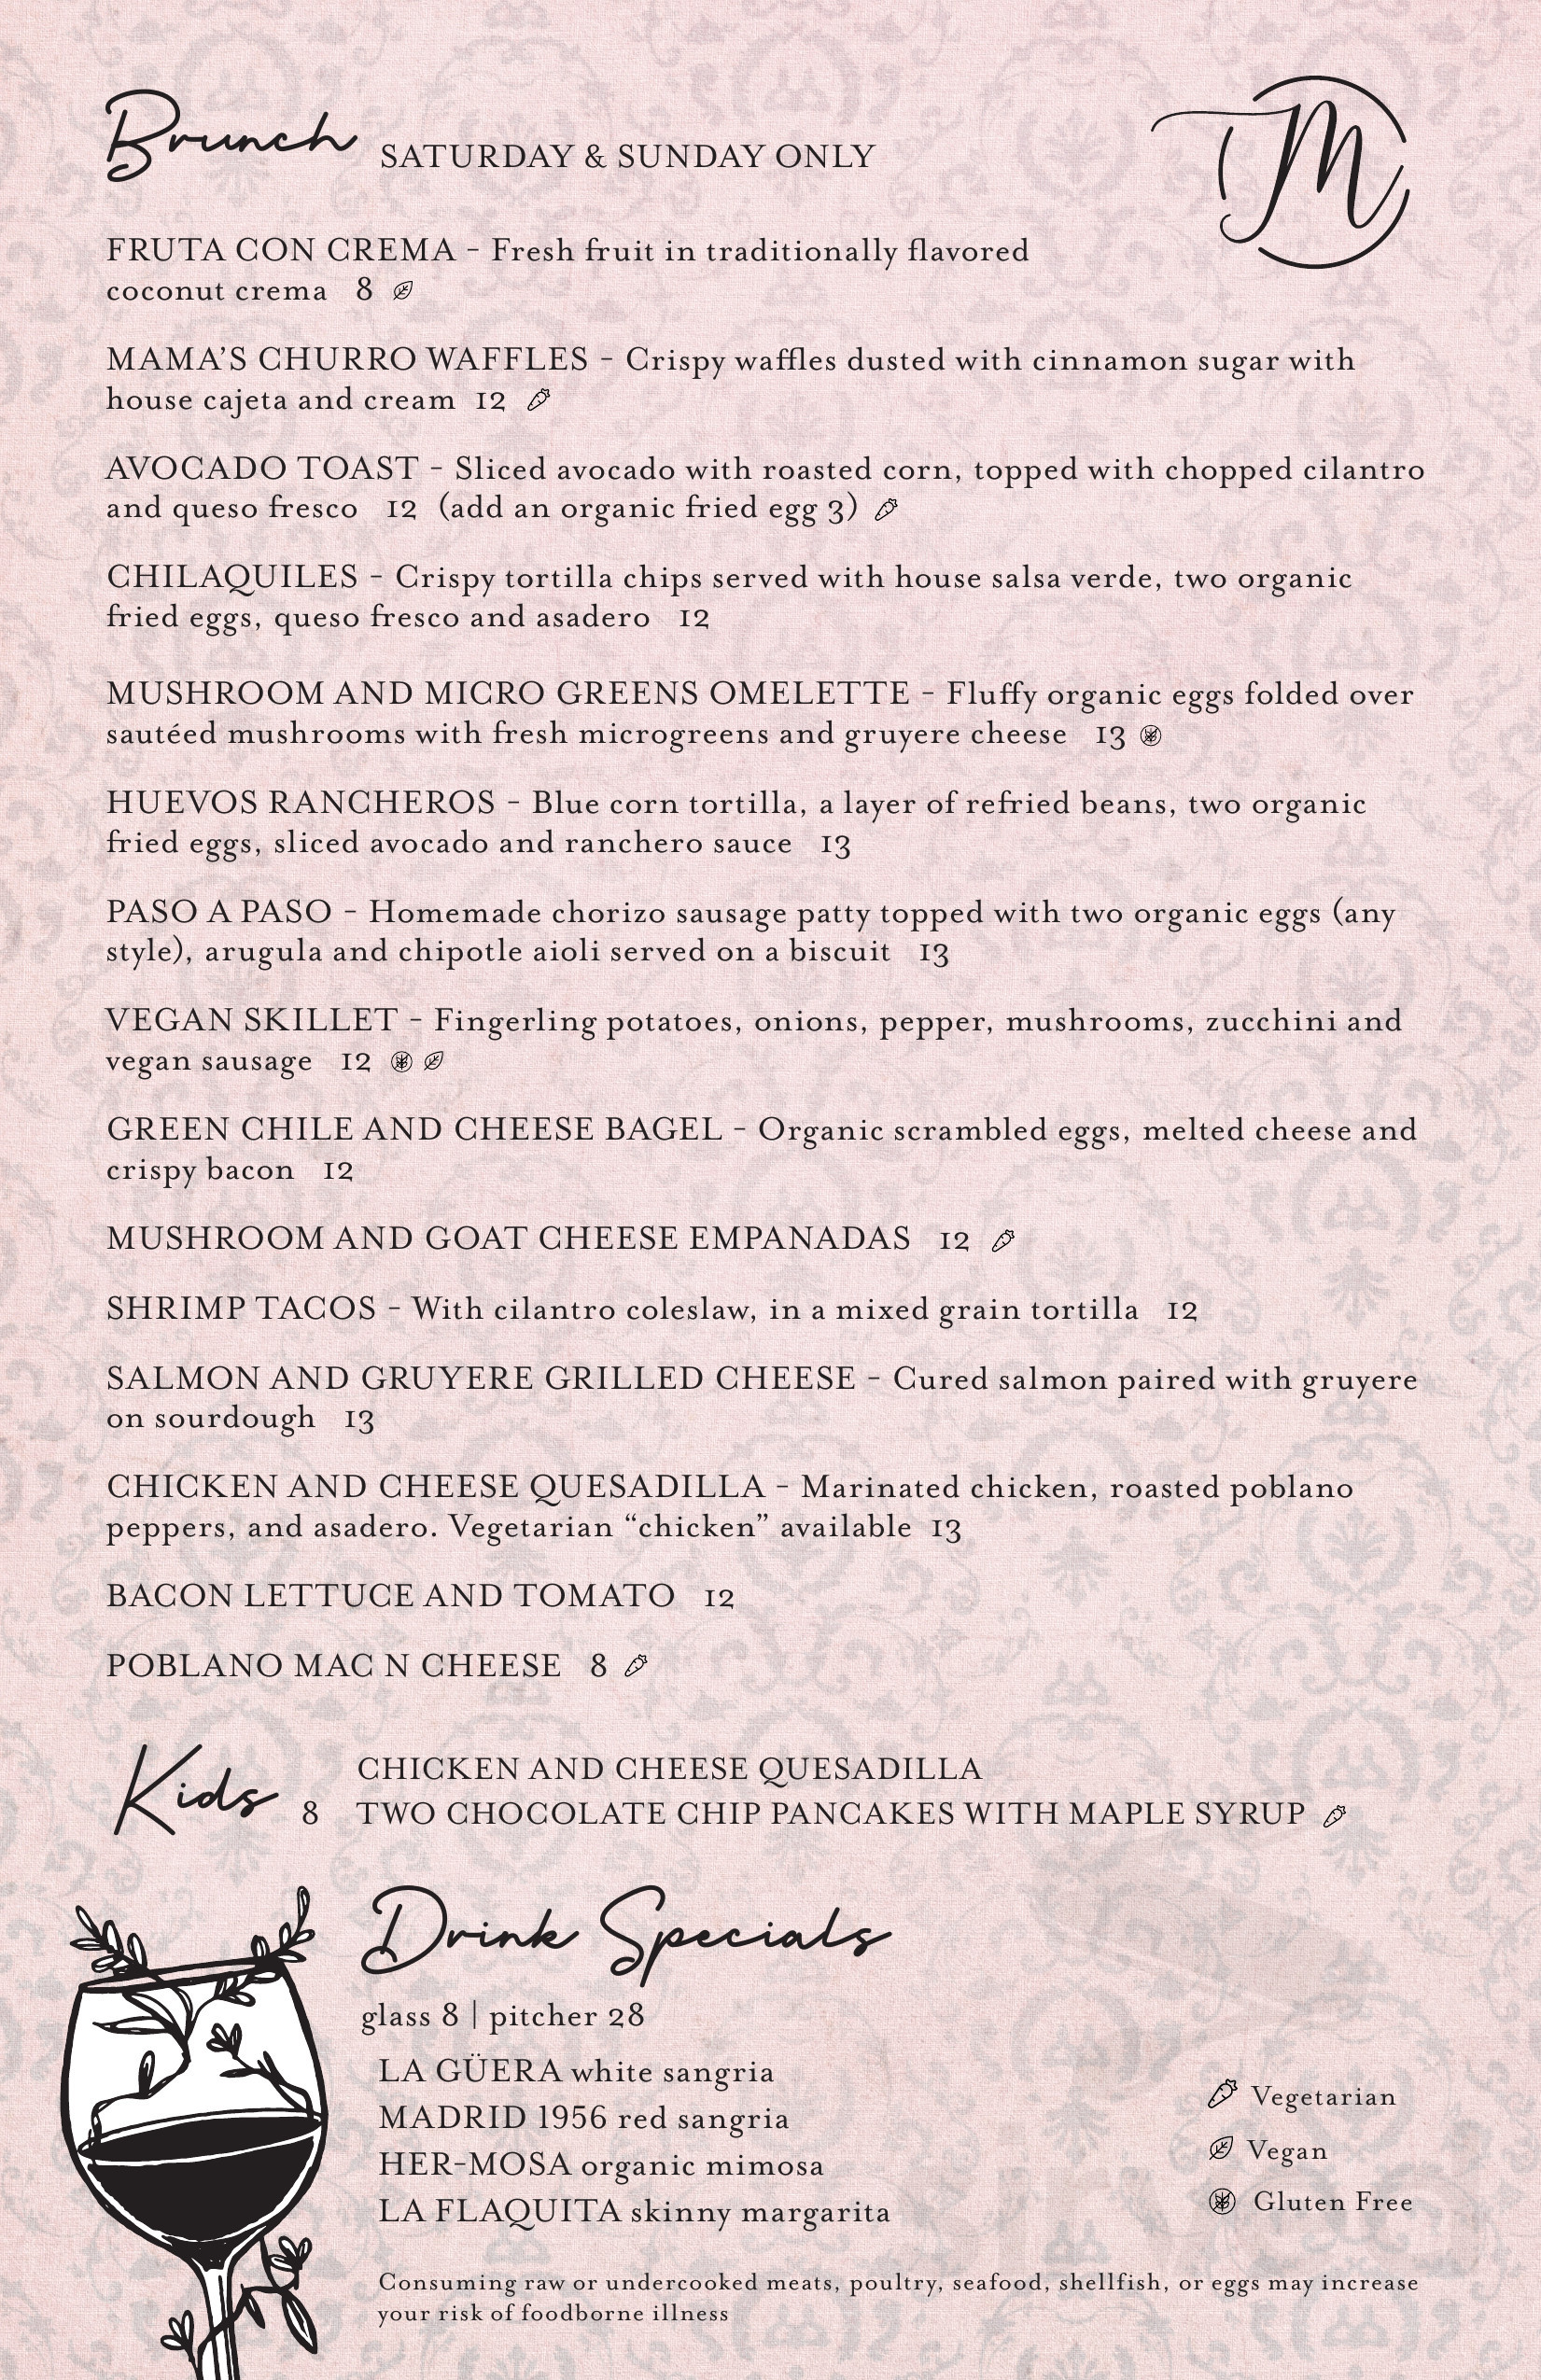 Brunch SATURDAY & SUNDAY ONLY
M
FRUTA CON CREMA - Fresh fruit in traditionally flavored
coconut crema 8
MAMA'S CHURRO WAFFLES - Crispy waffles dusted with cinnamon sugar with
house cajeta and cream 12
AVOCADO TOAST - Sliced avocado with roasted corn, topped with chopped cilantro
and queso fresco 12 (add an organic fried egg 3)
CHILAQUILES - Crispy tortilla chips served with house salsa verde, two organic
fried eggs, queso fresco and asadero 12
MUSHROOM AND MICRO GREENS OMELETTE - Fluffy organic eggs folded over
sautéed mushrooms with fresh microgreens and gruyere cheese 13
HUEVOS RANCHEROS - Blue corn tortilla, a layer of refried beans, two organic
fried eggs, sliced avocado and ranchero sauce 13
PASO A PASO - Homemade chorizo sausage patty topped with two organic eggs (any
style), arugula and chipotle aioli served on a biscuit 13
VEGAN SKILLET - Fingerling potatoes, onions, pepper, mushrooms, zucchini and
vegan sausage 12
GREEN CHILE AND CHEESE BAGEL - Organic scrambled eggs, melted cheese and
crispy bacon 12
MUSHROOM AND GOAT CHEESE EMPANADAS 12
SHRIMP TACOS - With cilantro coleslaw, in a mixed grain tortilla 12
SALMON AND GRUYERE GRILLED CHEESE - Cured salmon paired with gruyere
on sourdough 13
CHICKEN AND CHEESE QUESADILLA - Marinated chicken, roasted poblano
peppers, and asadero. Vegetarian “chicken” available 13
BACON LETTUCE AND TOMATO 12
POBLANO MAC N CHEESE 8
Kids 8
CHICKEN AND CHEESE QUESADILLA
TWO CHOCOLATE CHIP PANCAKES WITH MAPLE SYRUP
Drink Specials
glass 8 | pitcher 28
LA GÜERA white sangria
MADRID 1956 red sangria
HER-MOSA organic mimosa
LA FLAQUITA skinny margarita
Vegetarian
Vegan
Gluten Free
Consuming raw or undercooked meats, poultry, seafood, shellfish, or eggs may increase
your risk of foodborne illness